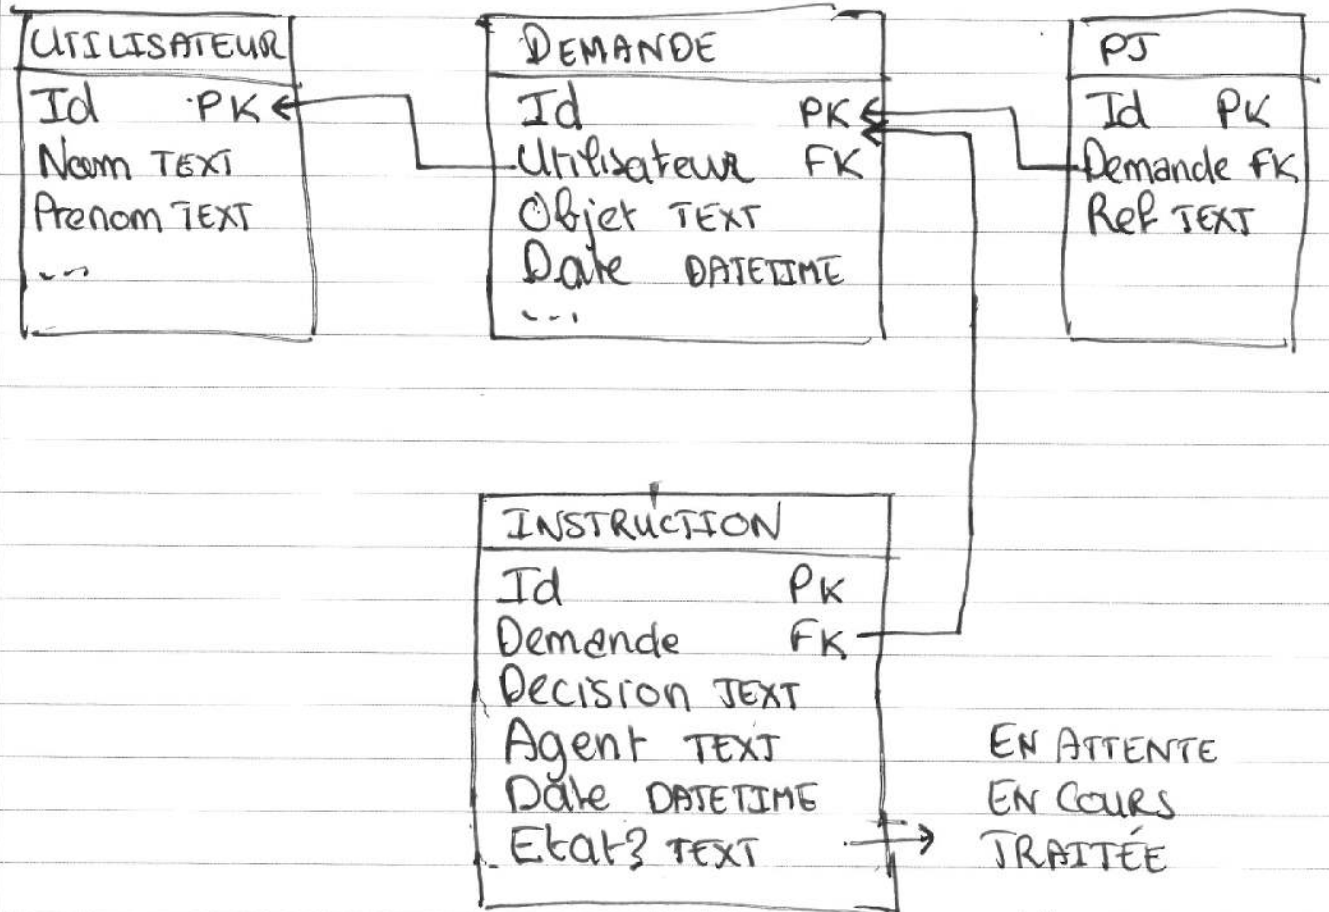 UTILISATEUR
Id PK
Nom TEXT
Prenom TEXT
...
DEMANDE
Id PK
Utilisateur FK
Objet TEXT
Date DATETIME
...
PJ
Id PK
Demande FK
Ref TEXT
INSTRUCTION
Id PK
Demande FK
Decision TEXT
Agent TEXT
Date DATETIME
Etat? TEXT
EN ATTENTE
EN COURS
TRAITÉE